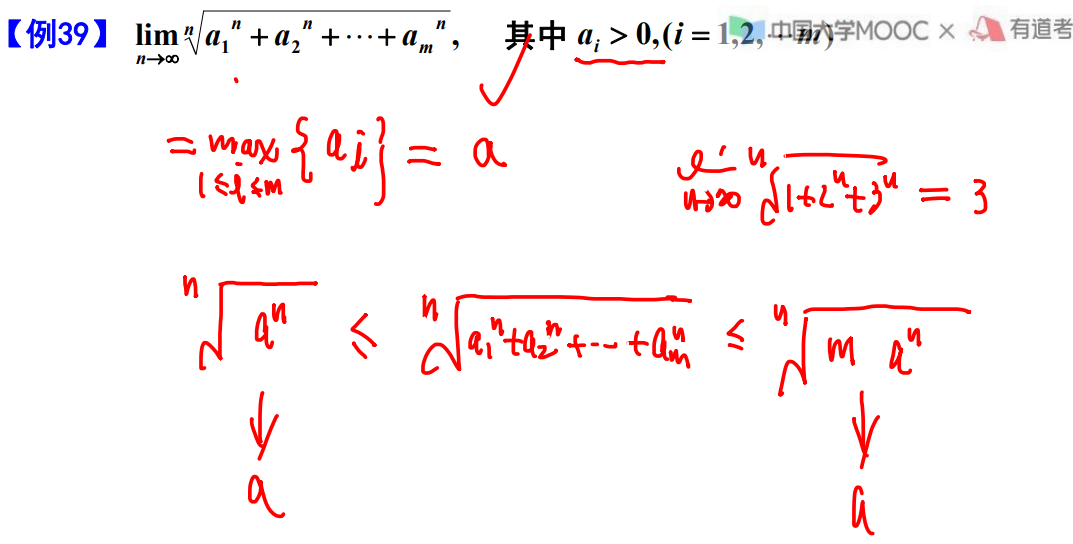 【例39】 lim n→∞ ⁿ√(a₁ⁿ + a₂ⁿ + ⋯ + aₘⁿ), 其中 aᵢ > 0, (i = 1,2,⋯m) 中国大学MOOC × 有道考
= max 1≤i≤m {aᵢ} = a
lim n→∞ ⁿ√(1+2ⁿ+3ⁿ) = 3
ⁿ√(aⁿ) ≤ ⁿ√(a₁ⁿ+a₂ⁿ+⋯+aₘⁿ) ≤ ⁿ√(m aⁿ)
↓ ↓
a a